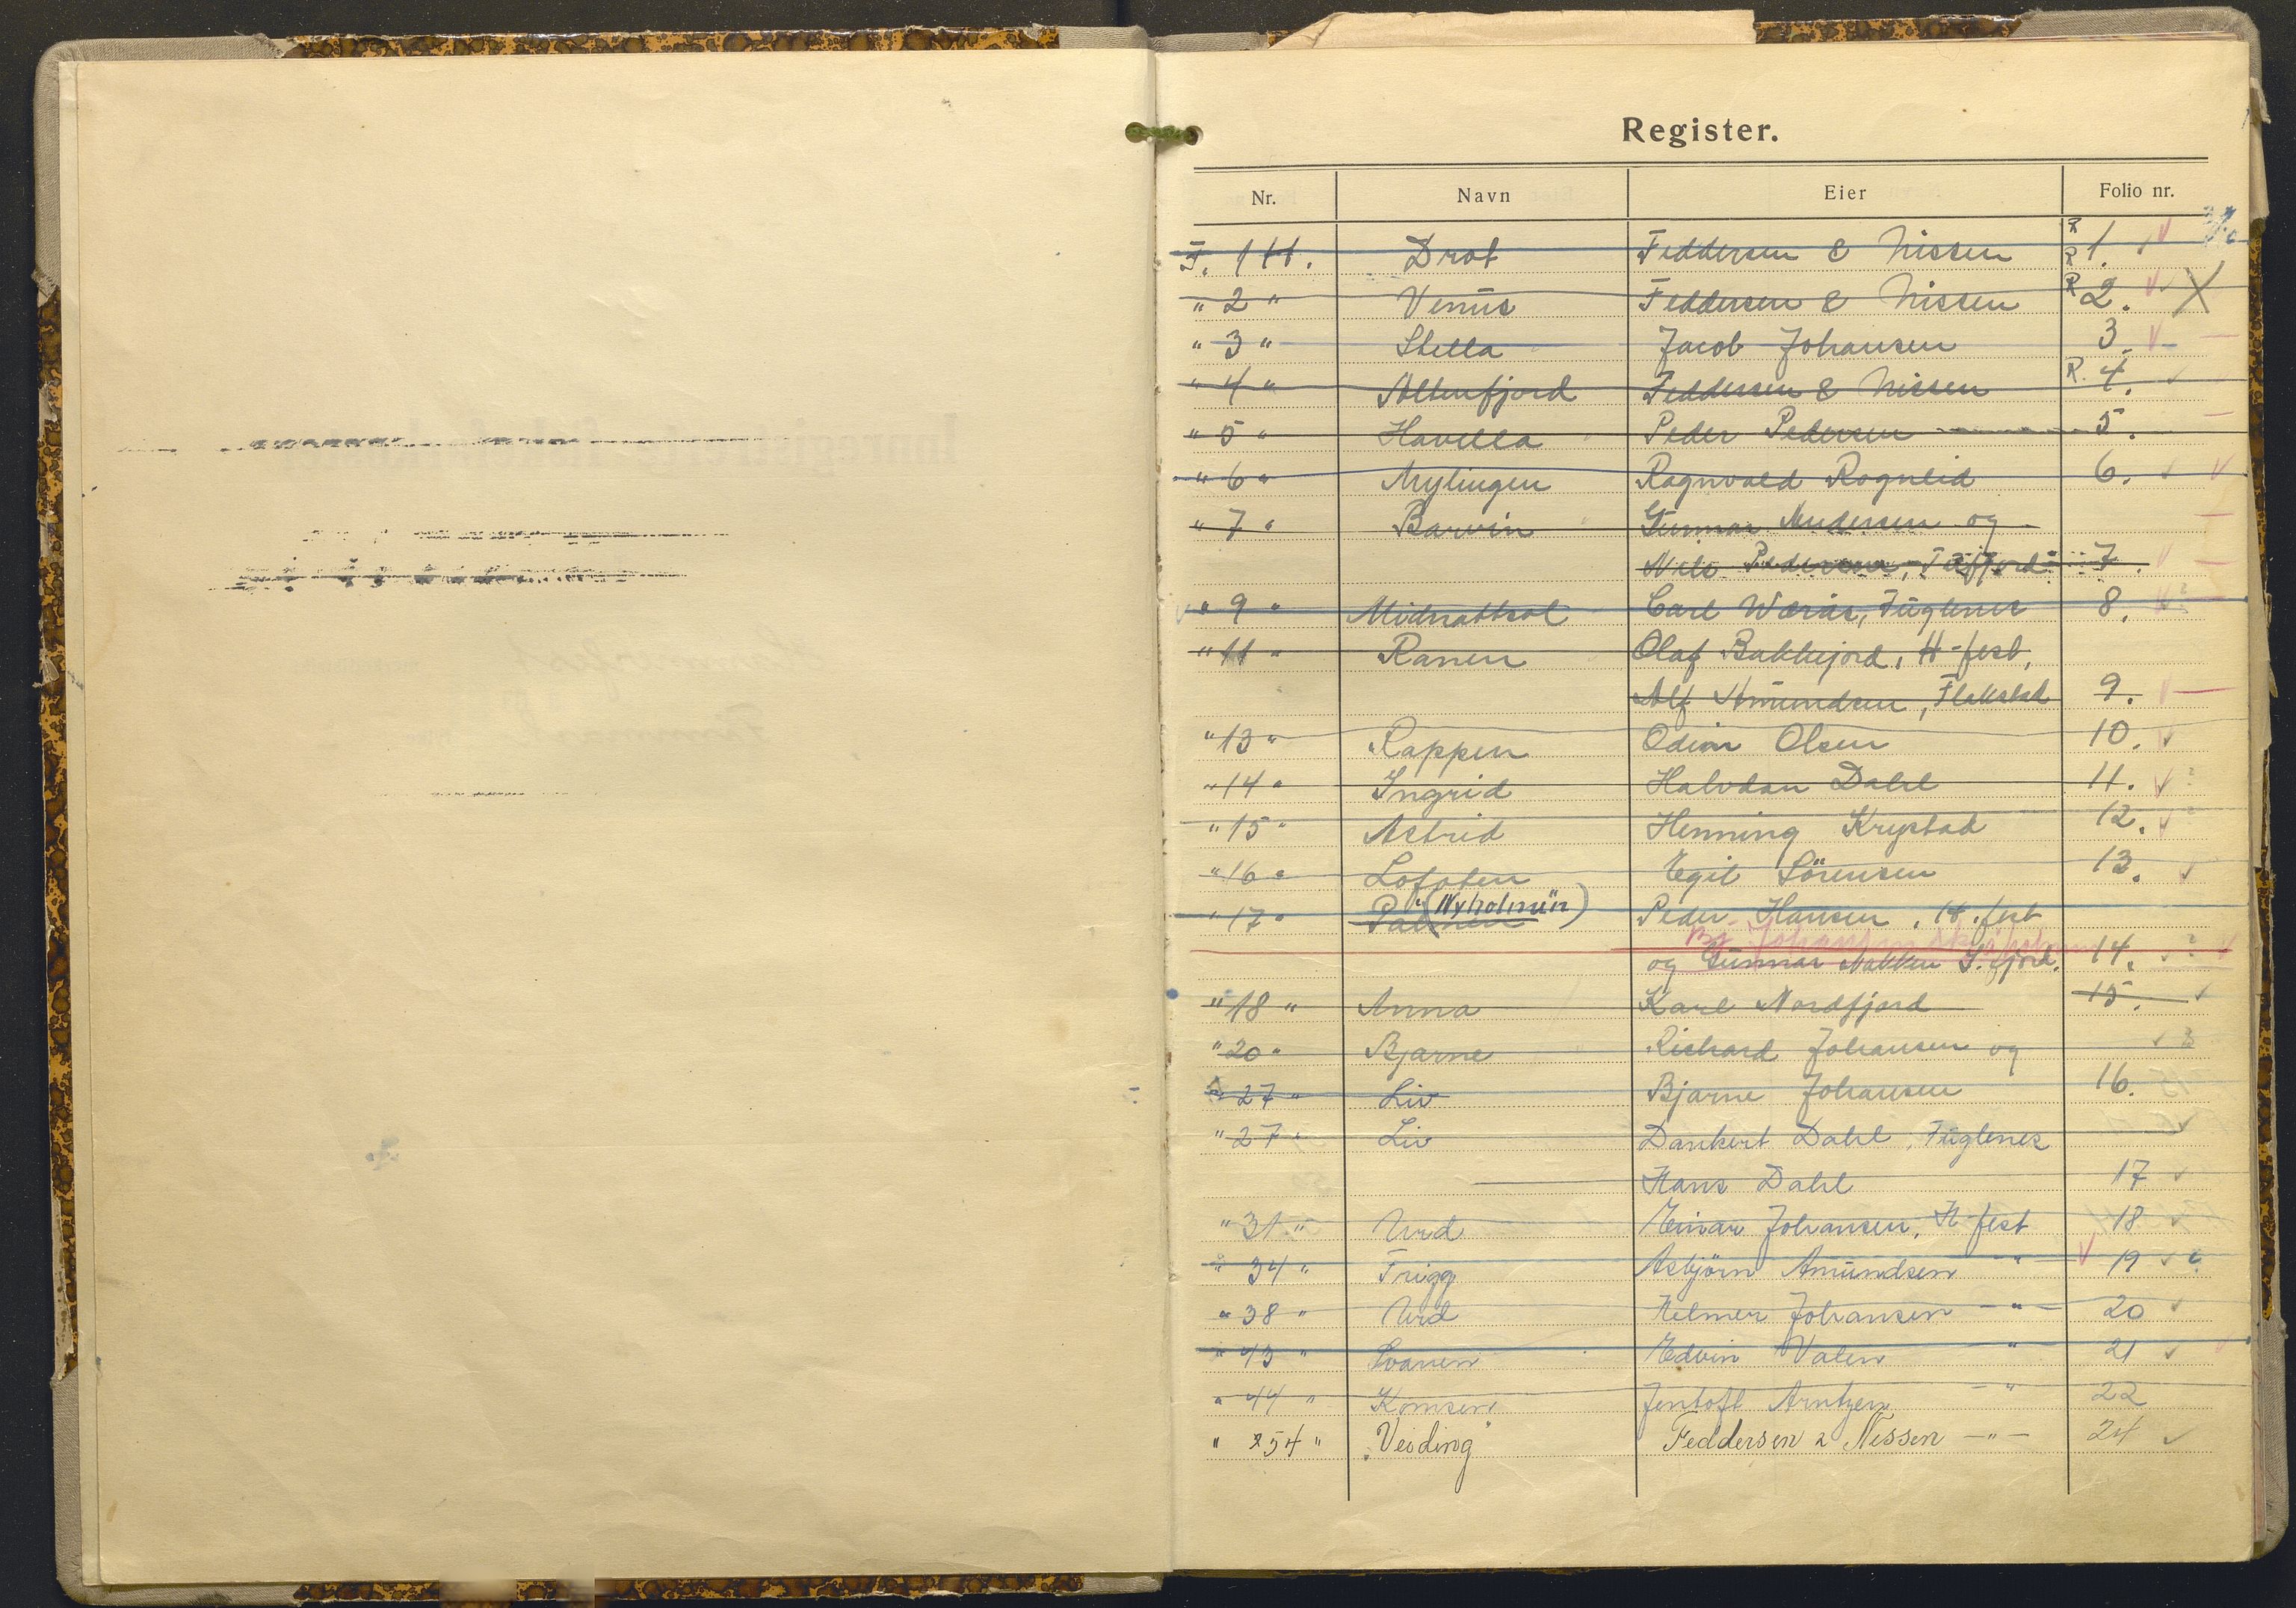 Register.
Nr. Navn Eier Folio nr.
F. 1 H. Drot Feddersen & Nissen R 1.
" 2 " Venus Feddersen & Nissen R 2.
" 3 " Stella Jacob Johansen 3
" 4 " Altenfjord Feddersen & Nissen R. 4.
" 5 " Havella Peder Pedersen 5.
" 6 " Mylingen Ragnvald Rogneid 6.
" 7 " Barvin Gunnar Andersen og
Nils Pedersen, Tufjord 7.
" 9 " Midnattsol Carl Werås, Fuglenes 8.
" 11 " Ranen Olaf Bakkejord, H-fest,
Alf Amundsen, Flakstad 9.
" 13 " Rappen Odin Olsen 10.
" 14 " Ingrid Halvdan Dahl 11.
" 15 " Astrid Henning Krystad 12.
" 16 " Lofoten Egil Sörensen 13.
" 17 " Palmen (Nyholmen) Peder Hansen, H.fest
og Gunnar Nakken S. fjord. 14.
" 18 " Anna Karl Nordfjord 15.
" 20 " Bjarne Richard Johansen og
" 27 " Liv Bjarne Johansen 16.
" 27 " Liv Dankert Dahl, Fuglenes
Hans Dahl 17
" 31 " Urd Einar Johansen, H-fest 18
" 34 " Frigg Asbjörn Amundsen " 19
" 38 " Urd Helmer Johansen - " - 20
" 43 " Svanen Edvin Valen " 21
" 44 " Komsen Jentoft Arntzen " 22
" 254 " "Veiding" Feddersen & Nissen - " - 24